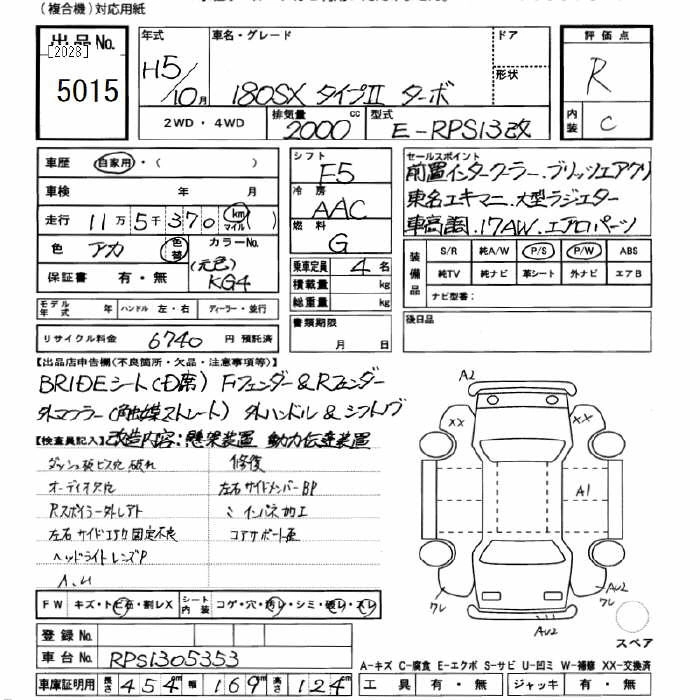 (複合機)対応用紙
出品No.
[2028]
5015
年式 車名・グレード ドア
H5/10月 180SX タイプII ターボ 形状
2WD・4WD 排気量 2000 cc 型式 E-RPS13改
評価点
R
内装 C
車歴 自家用・( )
車検 年 月
走行 11万5千370 km マイル ( )
色 アカ 色替 カラーNo.
(元色) KG4
保証書 有・無
モデル年式 年 ハンドル 左・右 ディーラー・並行
リサイクル料金 6740 円 預託済
シフト F5
冷房 AAC
燃料 G
乗車定員 4名
積載量 kg
総重量 kg
書類期限
月 日
セールスポイント
前置インタークーラー.ブリッツエアクリ
東名エキマニ.大型ラジエター
車高調.17AW.エアロパーツ
装備品 S/R 純A/W P/S P/W ABS
純TV 純ナビ 革シート 外ナビ エアB
ナビ型番:
後日品
【出品店申告欄(不良箇所・欠品・注意事項等)】
BRIDEシート(D席) Fフェンダー&Rフェンダー
外マフラー(触媒ストレート) 外ハンドル&シフトノブ
【検査員記入】改造内容:懸架装置 動力伝達装置
ダッシュ破ビス穴 破れ 修復
オーディオ欠 左右サイドメンバーBP
Rスポイラー外しアト ミ インパネ加工
左右サイドエアロ固定不良 コアサポート歪
ヘッドライトレンズP
A.U
FW キズ・ト ビ石・割レX シート内装 コゲ・穴・汚レ・シミ・破レ・スレ
登録No.
車台No. RPS1305353
車庫証明用 長さ 454cm 幅 169cm 高さ 124cm
A2
XX
XX
A1
ワレ
ワレ
AU2
AU2
スペア
A-キズ C-腐食 E-エクボ S-サビ U-凹ミ W-補修 XX-交換済
工具 有・無 ジャッキ 有・無